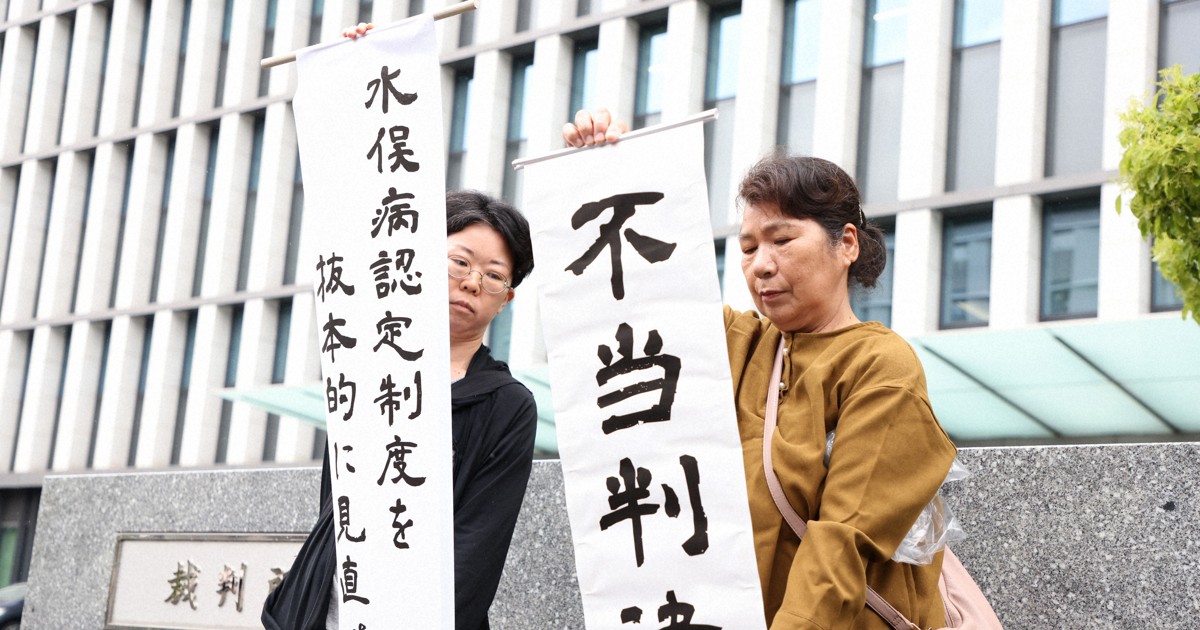 水俣病認定制度を
抜本的に見直
不当判決
裁判所